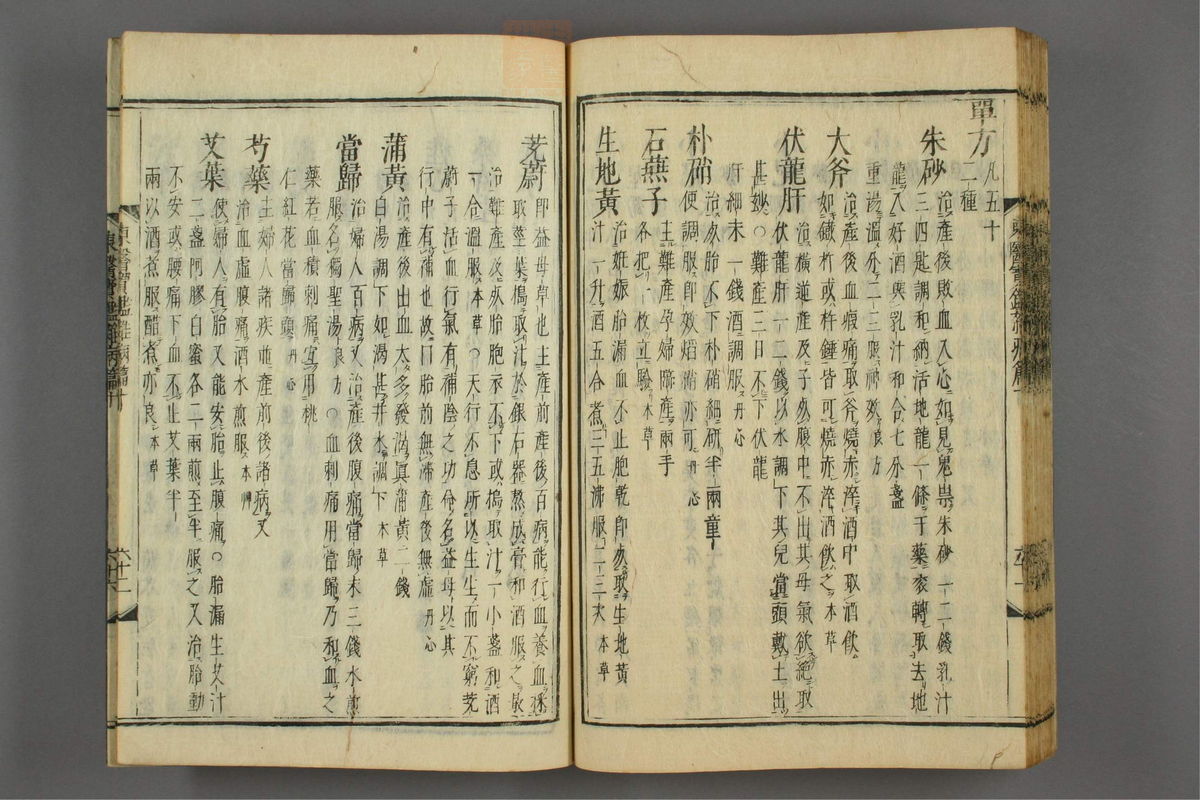 單方 凡五十二種
朱砂 治產後敗血入心如見鬼祟朱砂一二錢乳汁
三四匙調和納活地龍一條于藥衮轉取去地
龍入好酒與乳汁和合七分盞
重湯溫分二三服神效良方
大斧 治產後血瘕痛取斧燒赤淬酒中取酒飮
如鐵杵或杵錘皆可燒赤淬酒飮之本草
伏龍肝 治橫逆產及子死腹中不出其母氣欲絕取
伏龍肝一二錢以水調下其兒當頭戴土出
甚妙○難產三日不下伏龍
肝細末一錢酒調服丹心
朴硝 治死胎不下朴硝細硏半兩童
便調服卽效焰硝亦可丹心
石燕子 主難產孕婦臨產兩手
各把一枚立驗本草
生地黃 治姙娠胎漏血不止胞乾卽死取生地黃
汁一升酒五合煮三五沸服二三次本草
茺蔚 卽益母草也主產前產後百病能行血養血採
取莖葉搗取汁於銀石器熬成膏和酒服之
治難產及死胎胞衣不下或搗取汁一小盞和酒
一合溫服本草○天行不息所以生生而不窮茺
蔚子活血行氣有補陰之功命名益母以其
行中有補也故曰胎前無滯產後無虛丹心
蒲黃 治產後出血太多發渴眞蒲黃二錢
白湯調下如渴甚井水調下本草
當歸 治婦人百病又治產後腹痛當歸末三錢水煎
服名獨聖湯良方○血刺痛用當歸乃和血之
藥若血積刺痛宜用桃
仁紅花當歸頭丹心
芍藥 主婦人諸疾幷產前後諸病又
治血虛腹痛酒水煎服本草
艾葉 使婦人有胎又能安胎止腹痛○胎漏生艾汁
二盞阿膠白蜜各二兩煎至半服之又治胎動
不安或腰痛下血不止艾葉半
兩以酒煮服醋煮亦良本草